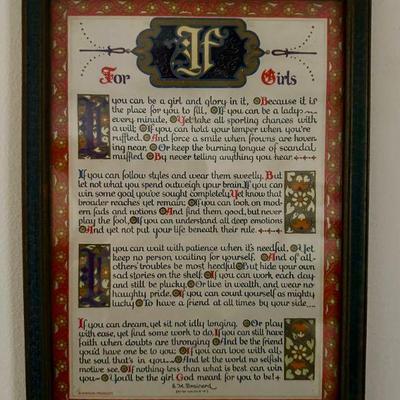 If
For Girls
If you can be a girl and glory in it, Because it is
the place for you to fill, If you can be a lady
every minute, Yet take all sporting chances with
a will; If you can hold your temper when you're
ruffled, And force a smile when frowns are hover-
ing near, Or keep the burning tongue of scandal
muffled By never telling anything you hear.
If you can follow styles and wear them sweetly, But
let not what you spend outweigh your brain, If you can
win some goal you've sought completely, Yet know that
broader reaches yet remain; If you can look on mod-
ern fads and notions And find them good, but never
play the fool, If you can understand all deep emotions
And yet not put your life beneath their rule.
If you can wait with patience when it's needful, Yet
keep no person waiting for yourself, And of all
others' troubles be most heedful But hide your own
sad stories on the shelf; If you can work each day
and still be plucky, Or live in wealth, and wear no
haughty pride, If you can count yourself as mighty
lucky To have a friend at all times by your side,
If you can dream, yet sit not idly longing, Or play
with ease, yet find some work to do, If you can still have
faith when doubts are thronging And be the friend
you'd have one be to you; If you can love with all
the soul that's in you And let the world no selfish
motive see, If nothing less than what is best can win
you You'll be the girl God meant for you to be!